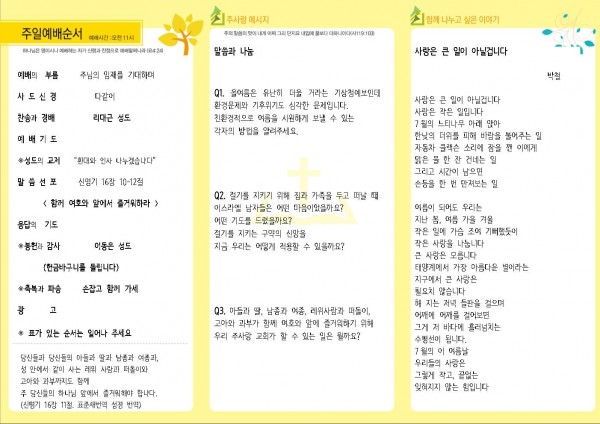 주일예배순서
예배시간 : 오전11시
하나님은 영이시니 예배하는 자가 신령과 진정으로 예배할찌니라 (요4:24)
예배의 부름 주님의 임재를 기대하며
사도신경 다같이
찬송과 경배 리대군 성도
예배기도
※성도의 교제 "환대와 인사 나누겠습니다"
말씀선포 신명기 16장 10-12절
< 함께 여호와 앞에서 즐거워하라 >
응답의 기도
※봉헌과 감사 이동은 성도
(헌금바구니를 돌립니다)
※축복과 파송 손잡고 함께 가세
광고
※ 표가 있는 순서는 일어나 주세요
당신들과 당신들의 아들과 딸과 남종과 여종과,
성 안에서 같이 사는 레위 사람과 떠돌이와
고아와 과부까지도 함께
주 당신들의 하나님 앞에서 즐거워해야 합니다.
(신명기 16장 11절. 표준새번역 성경 번역)
주사랑 메시지
주의 말씀의 맛이 내게 어찌 그리 단지요 내입에 꿀보다 더하니이다(시119:103)
말씀과 나눔
Q1. 올여름은 유난히 더울 거라는 기상청예보인데
환경문제와 기후위기도 심각한 문제입니다.
친환경적으로 여름을 시원하게 보낼 수 있는
각자의 방법을 알려주세요.
Q2. 절기를 지키기 위해 집과 가족을 두고 떠날 때
이스라엘 남자들은 어떤 마음이었을까요?
어떤 기도를 드렸을까요?
절기를 지키는 구약의 신앙을
지금 우리는 어떻게 적용할 수 있을까요?
Q3. 아들과 딸, 남종과 여종, 레위사람과 떠돌이,
고아와 과부가 함께 여호와 앞에 즐거워하기 위해
우리 주사랑 교회가 할 수 있는 일은 뭘까요?
함께 나누고 싶은 이야기
사랑은 큰 일이 아닐겁니다
박철
사랑은 큰 일이 아닐겁니다
사랑은 작은 일입니다
7월의 느티나무 아래 앉아
한낮의 더위를 피해 바람을 불어주는 일
자동차 클랙슨 소리에 잠을 깬 이에게
맑은 물 한 잔 건네는 일
그리고 시간이 남으면
손등을 한 번 만져보는 일
여름이 되어도 우리는
지난 봄, 여름 가을 겨울
작은 일에 가슴 조여 기뻐했듯이
작은 사랑을 나눕니다
큰 사랑은 모릅니다
태양계에서 가장 아름다운 별이라는
지구에서 큰 사랑은
필요치 않습니다
해 지는 저녁 들판을 걸으며
어깨에 어깨를 걸어보면
그게 저 바다에 흘러넘치는
수평선이 됩니다.
7월의 이 여름날
우리들의 사랑은
그렇게 작고, 끝없는
잊혀지지 않는 힘입니다